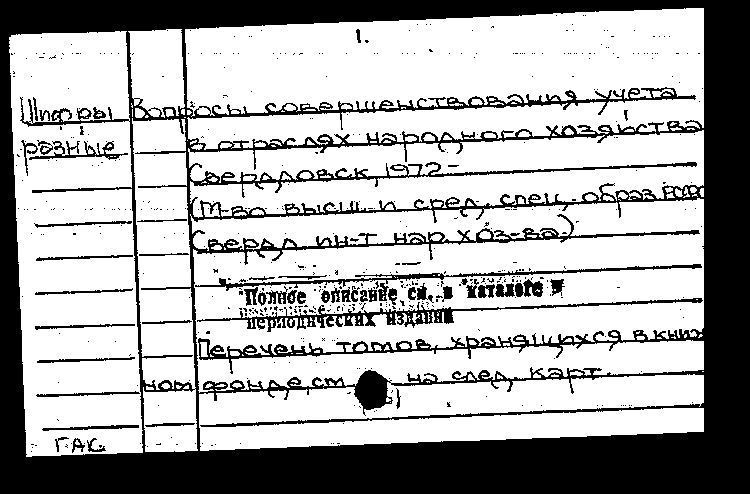 1.
Шифры Вопросы совершенствования учета
разные в отраслях народного хозяйства
Свердловск, 1972-
(М-во высш. и сред. спец. образ. РСФСР
Свердл. ин-т нар. хоз-ва)
Полное описание см. в каталоге
периодических изданий
Перечень томов, хранящихся в книж
ном фонде, см на след. карт.
ГАК